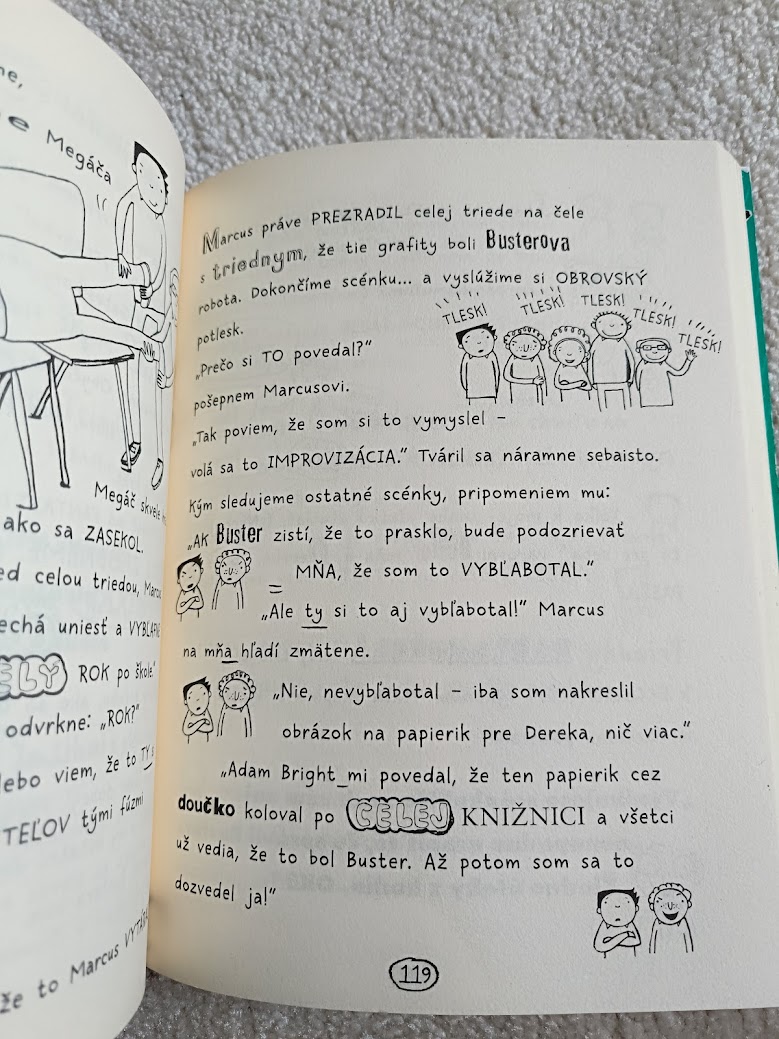 Megáča
Megáč
ako sa ZASEKOL.
celou triedou,
uniesť a
ROK po škole."
odvrkne: „ROK?"
viem, že to TY
tými
že to Marcus
Marcus práve PREZRADIL celej triede na čele
s triednym, že tie grafity boli Busterova
robota. Dokončíme scénku... a vyslúžime si OBROVSKÝ
potlesk.
TLESK! TLESK! TLESK! TLESK! TLESK!
„Prečo si TO povedal?"
pošepnem Marcusovi.
„Tak poviem, že som si to vymyslel –
volá sa to IMPROVIZÁCIA." Tváril sa náramne sebaisto.
Kým sledujeme ostatné scénky, pripomeniem mu:
„AK Buster zistí, že to prasklo, bude podozrievať
MŇA, že som to VYBĽABOTAL."
„Ale ty si to aj vybľabotal!" Marcus
na mňa hľadí zmätene.
„Nie, nevybľabotal – iba som nakreslil
obrázok na papierik pre Dereka, nič viac."
„Adam Bright mi povedal, že ten papierik cez
doučko koloval po CELEJ KNIŽNICI a všetci
už vedia, že to bol Buster. Až potom som sa to
dozvedel ja!"
119